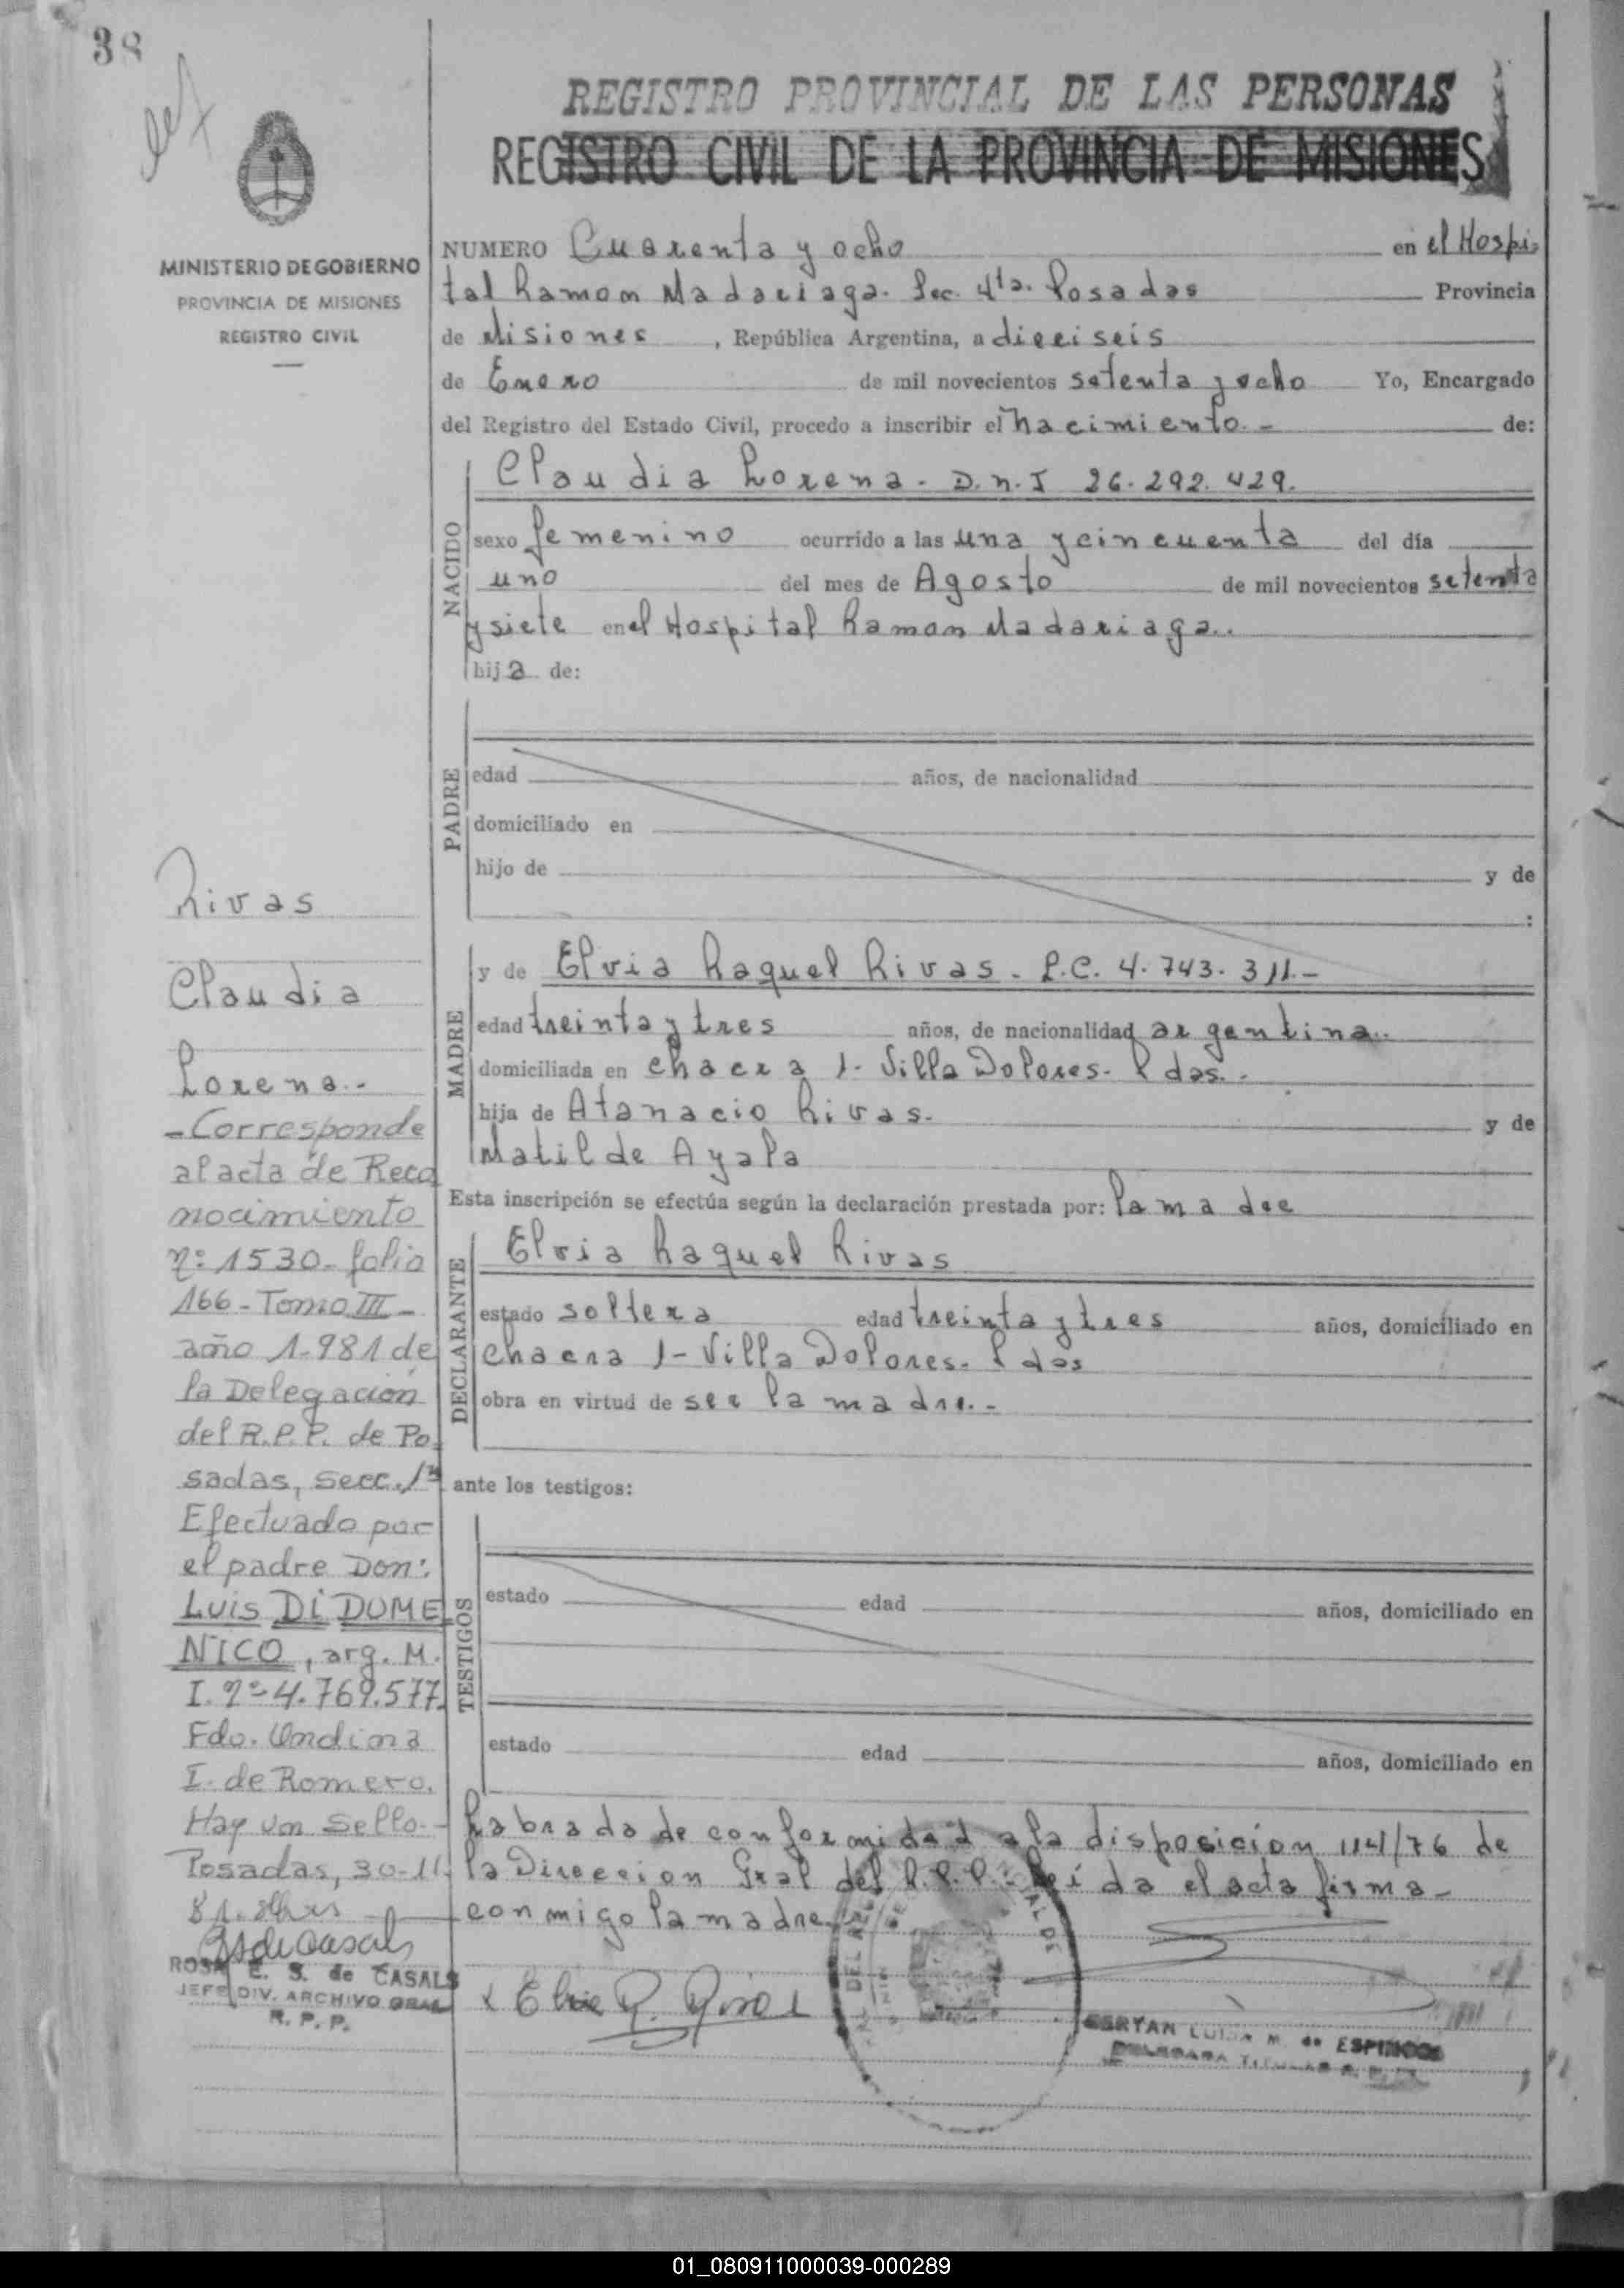 38
REGISTRO PROVINCIAL DE LAS PERSONAS
REGISTRO CIVIL DE LA PROVINCIA DE MISIONES
MINISTERIO DE GOBIERNO
PROVINCIA DE MISIONES
REGISTRO CIVIL
NUMERO Cuarenta y ocho en el Hospi
tal Ramon Madariaga. Sec. 4ta. Posadas Provincia
de Misiones, República Argentina, a dieciseis
de Enero de mil novecientos setenta y ocho Yo, Encargado
del Registro del Estado Civil, procedo a inscribir el nacimiento.- de:
NACIDO
Claudia Lorena. D.n.I 26.292.429.
sexo femenino ocurrido a las una y cincuenta del día
uno del mes de Agosto de mil novecientos setenta
y siete en el Hospital Ramon Madariaga..
hija de:
PADRE
edad años, de nacionalidad
domiciliado en
hijo de y de
:
MADRE
y de Elvia Raquel Rivas. L.C. 4.743.311.-
edad treinta y tres años, de nacionalidad argentina..
domiciliada en chacra 1- Villa Dolores- Pdas..
hija de Atanacio Rivas. y de
Matilde Ayala
Esta inscripción se efectúa según la declaración prestada por: la madre
DECLARANTE
Elvia Raquel Rivas
estado soltera edad treinta y tres años, domiciliado en
chacra 1- Villa Dolores- Pdas
obra en virtud de ser la madre.-
ante los testigos:
TESTIGOS
estado edad años, domiciliado en
estado edad años, domiciliado en
Labrada de conformidad a la disposicion 114/76 de
la Direccion Gral del R.P.P.- Leída el acta firma
conmigo la madre
ESPINOSA
Rivas
Claudia
Lorena..
-Corresponde
al acta de Reco
nocimiento
nº: 1530- folio
166- Tomo III-
año 1.981 de
la Delegación
del R.P.P. de Po
sadas, secc. 1ª
Efectuado por
el padre Don:
Luis DI DOME
NICO, arg. M.
I. nº 4.769.577.
Fdo. Ondina
I. de Romero.
Hay un Sello.-
Posadas, 30-11-
81.
ROSA E. S. de CASALS
JEFE DIV. ARCHIVO GRAL
R. P. P.
01_080911000039-000289